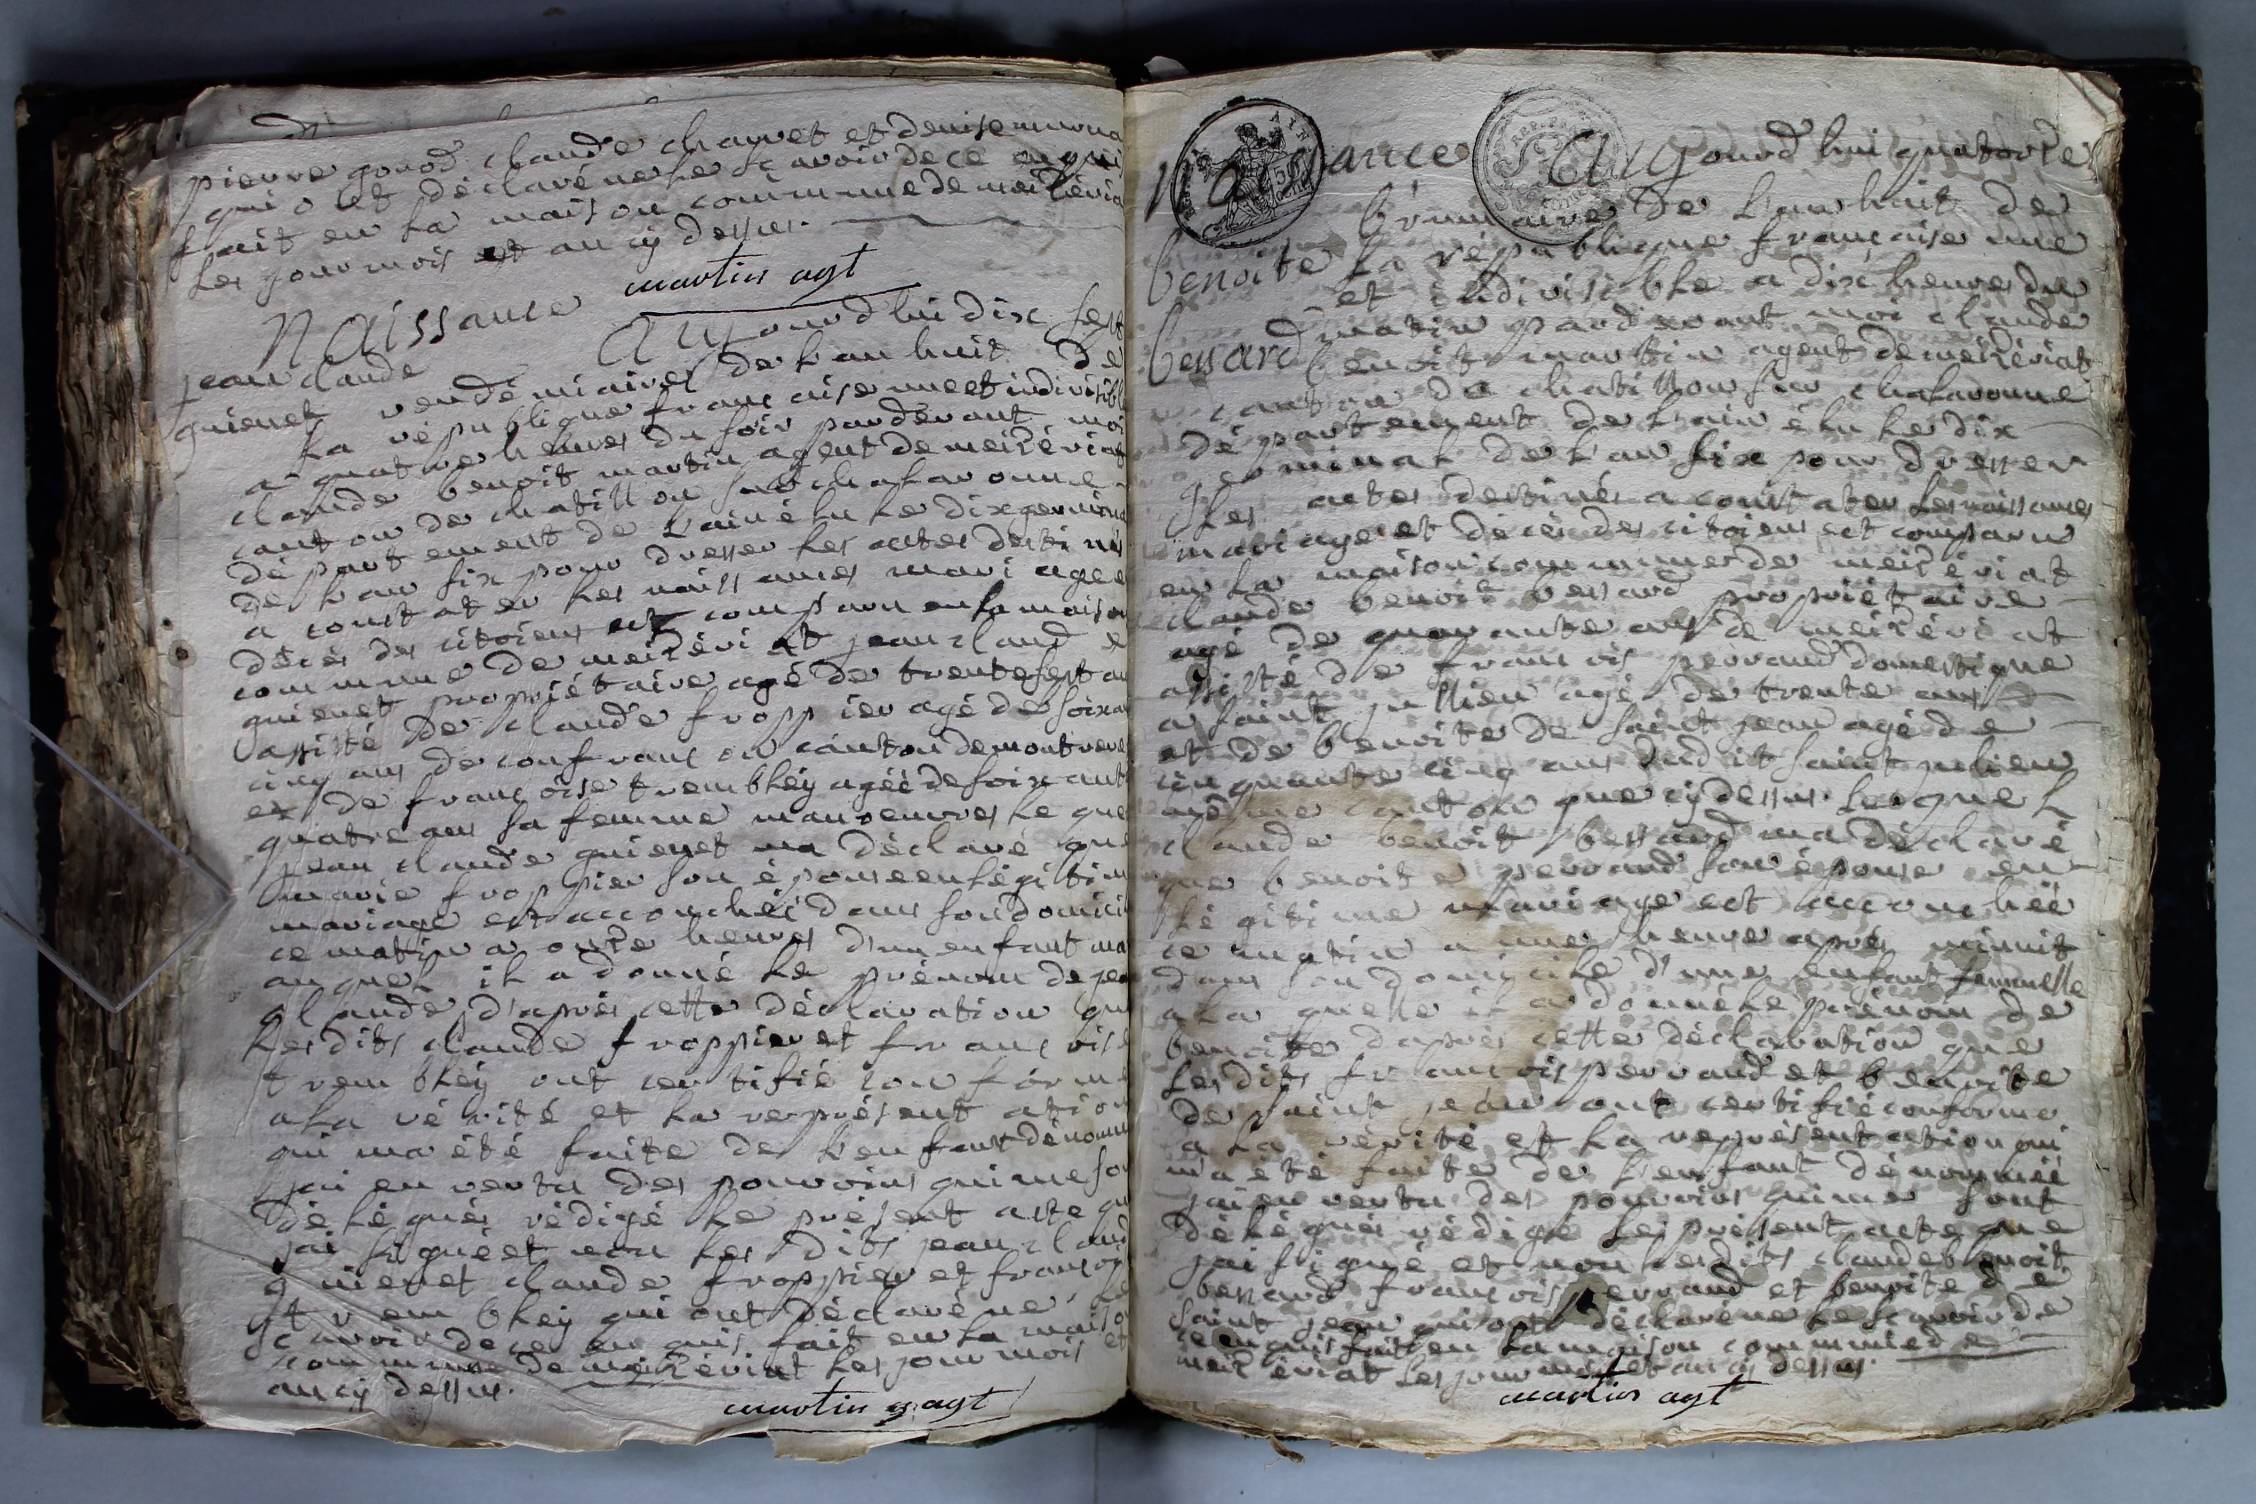 pierre gonod claude chanvet et denise
qui ont déclaré ne le sçavoir de ce enquis
fait en la maison commune de meizéria
les jour mois et an cy dessus.
martin agt
Naissance Aujourd hui dix sept
jean claude
guienet vendémiaire de l'an huit de
la république française une et indivisibl
a quatre heures du soir pardevant moi
claude benoit martin agent de meizériat
canton de chatillon sur chalaronne
département de l'ain élu le dix germinal
de l'an six pour dresser les actes destinés
a constater les naissances mariages
décés des citoiens est comparu en la maison
commune de meizériat jean claude
guienet propriétaire agé de trente sept an
assisté de claude froppier agé de soixan
cinq ans de confrançon canton de montrevel
et de françoise trembley agéé de soixant
quatre ans sa femme manoeuvres le que
jean claude guienet ma déclaré que
marie froppier son épouse en légitim
mariage est accouchéé dans son domicil
ce matin a onze heures d'un enfant ma
auquel il a donné le prénom de jea
claude d'aprés cette déclaration qu
lesdits claude froppier et françoise
trembley ont certifié conforme
a la vérité et la représentation
qui ma été faite de l'enfant dénomm
jai en vertu des pouvoirs qui me son
délégués rédigé le présent acte que
jai signé et non les dits jean claud
guienet claude froppier et françoi
trembley qui ont déclaré ne le
sçavoir de ce enquis fait en la maiso
commune de meizériat les jour mois et
an cy dessus.
martin agt
Naissance Aujourd hui quatorze
brumaire de l'an huit de
benoite la république française une
et indivisible a dix heures du
bessard matin pardevant moi claude
benoit martin agent de meizériat
canton de chatillon sur chalaronne
département de l'ain élu le dix
germinal de l'an six pour dresser
les actes destinés a constater les naissances
mariages et décés des citoiens est comparu
en la maison commune de meizériat
claude benoit bessard propriétaire
agé de quarante ans de meizériat
assisté de françois perraud domestique
a saint jullien agé de trente ans
et de benoite de saint jean agé de
cinquante cinq ans dudit saint julien
même canton que cy dessus. lesquel
claude benoit bessard ma déclaré
que benoite perraud son épouse en
légitime mariage est accouchéé
ce matin a une heure aprés minuit
dans son domicile d'une enfant femmelle
a la quelle il a donné le prénom de
benoite d'aprés cette déclaration que
lesdits françois perraud et benoite
de saint jean ont certifié conforme
a la vérité et la représentation qui
m'a été faite de l'enfant dénommé
jai en vertu des pouvoirs qui me sont
délégués rédigé le présent acte que
jai signé et non lesdits claude benoit
bessard françois perraud et benoite de
saint jean qui ont déclaré ne le sçavoir de
ce enquis fait en la maison commune de
meizériat les jour mois et an cy dessus.
martin agt